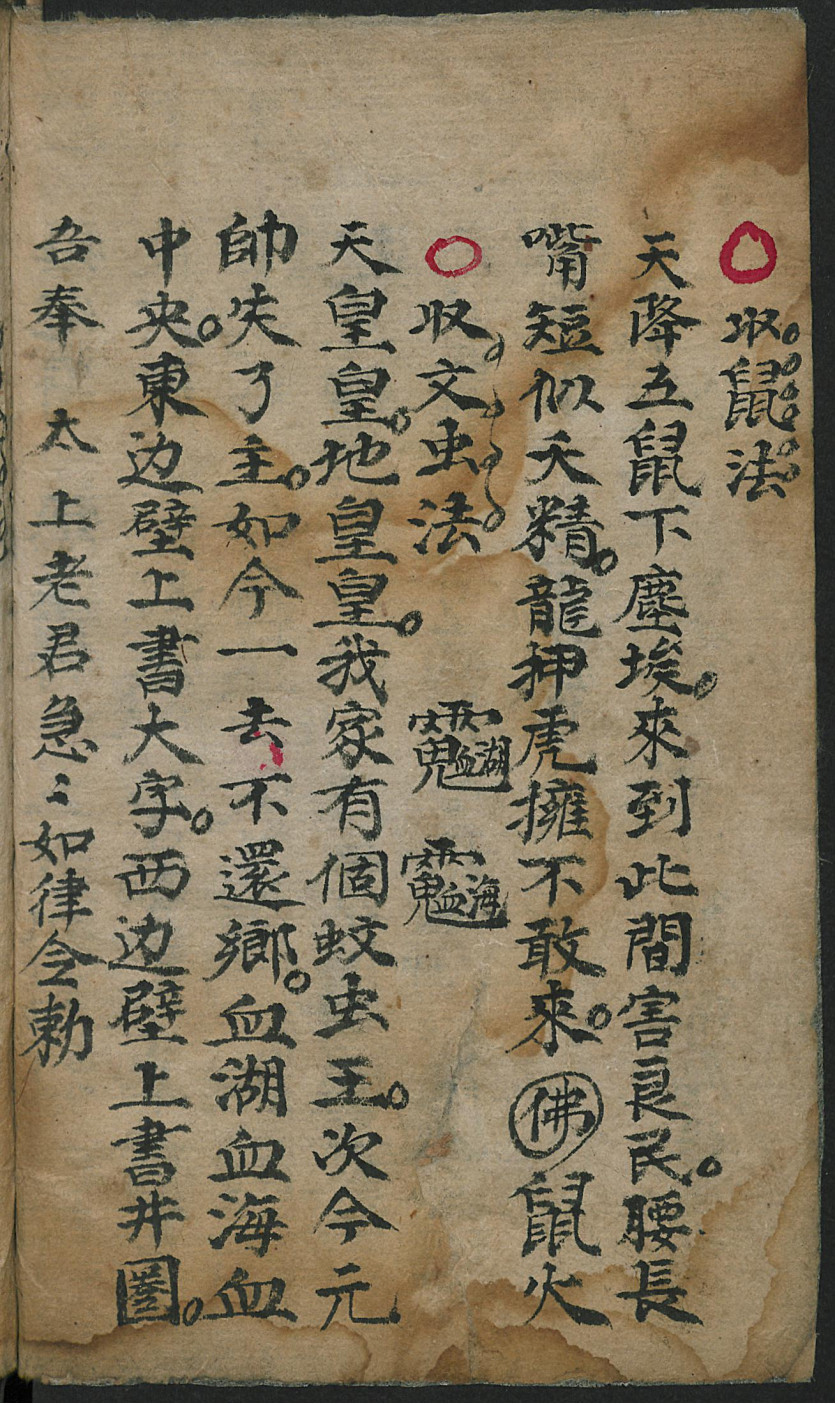 収鼠法
天降五鼠下塵埃。來到此間害良民。腰長
嘴短似夭精。龍抻虎擁不敢來。佛鼠火
収文虫法
天皇皇。地皇皇。我家有個蚊虫王。次今元
帥失了主。如今一去不還鄉。血湖血海血
中央。東边壁上書大字。西边壁上書井圈。
吾奉 太上老君急〻如律令勅